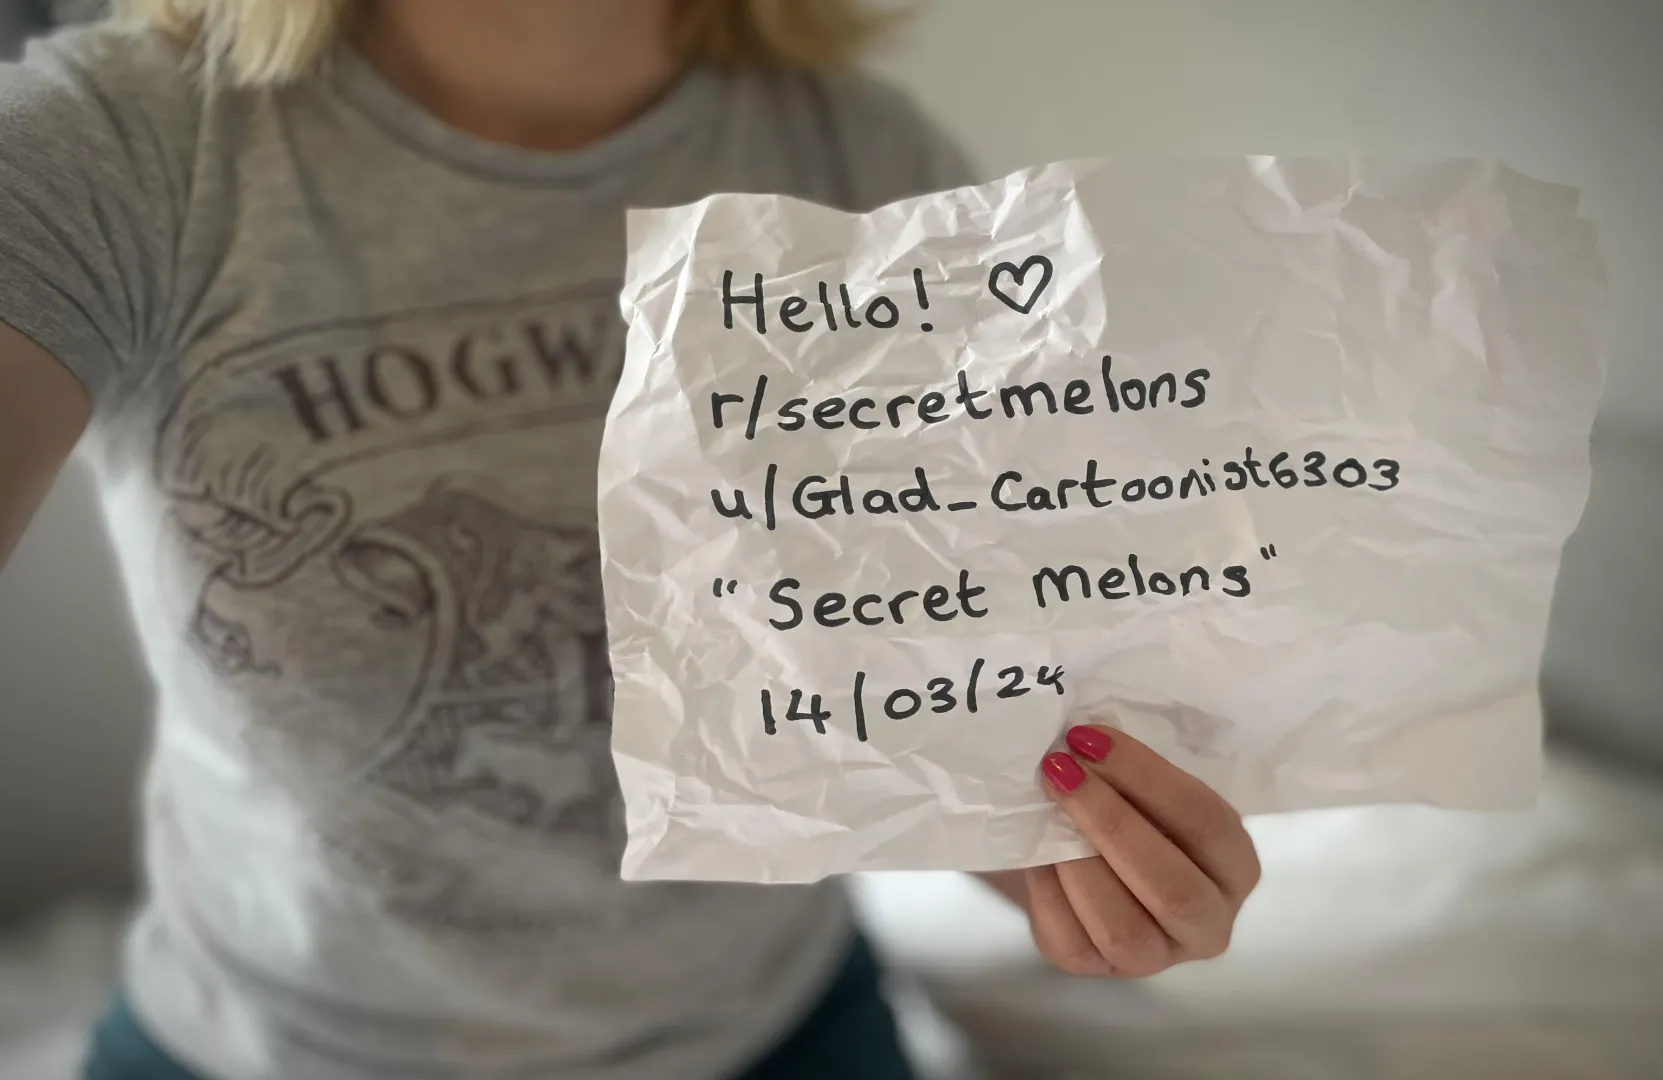 HOGW
Hello! ♡
r/secretmelons
u/Glad_Cartoonist6303
"Secret Melons"
14/03/24